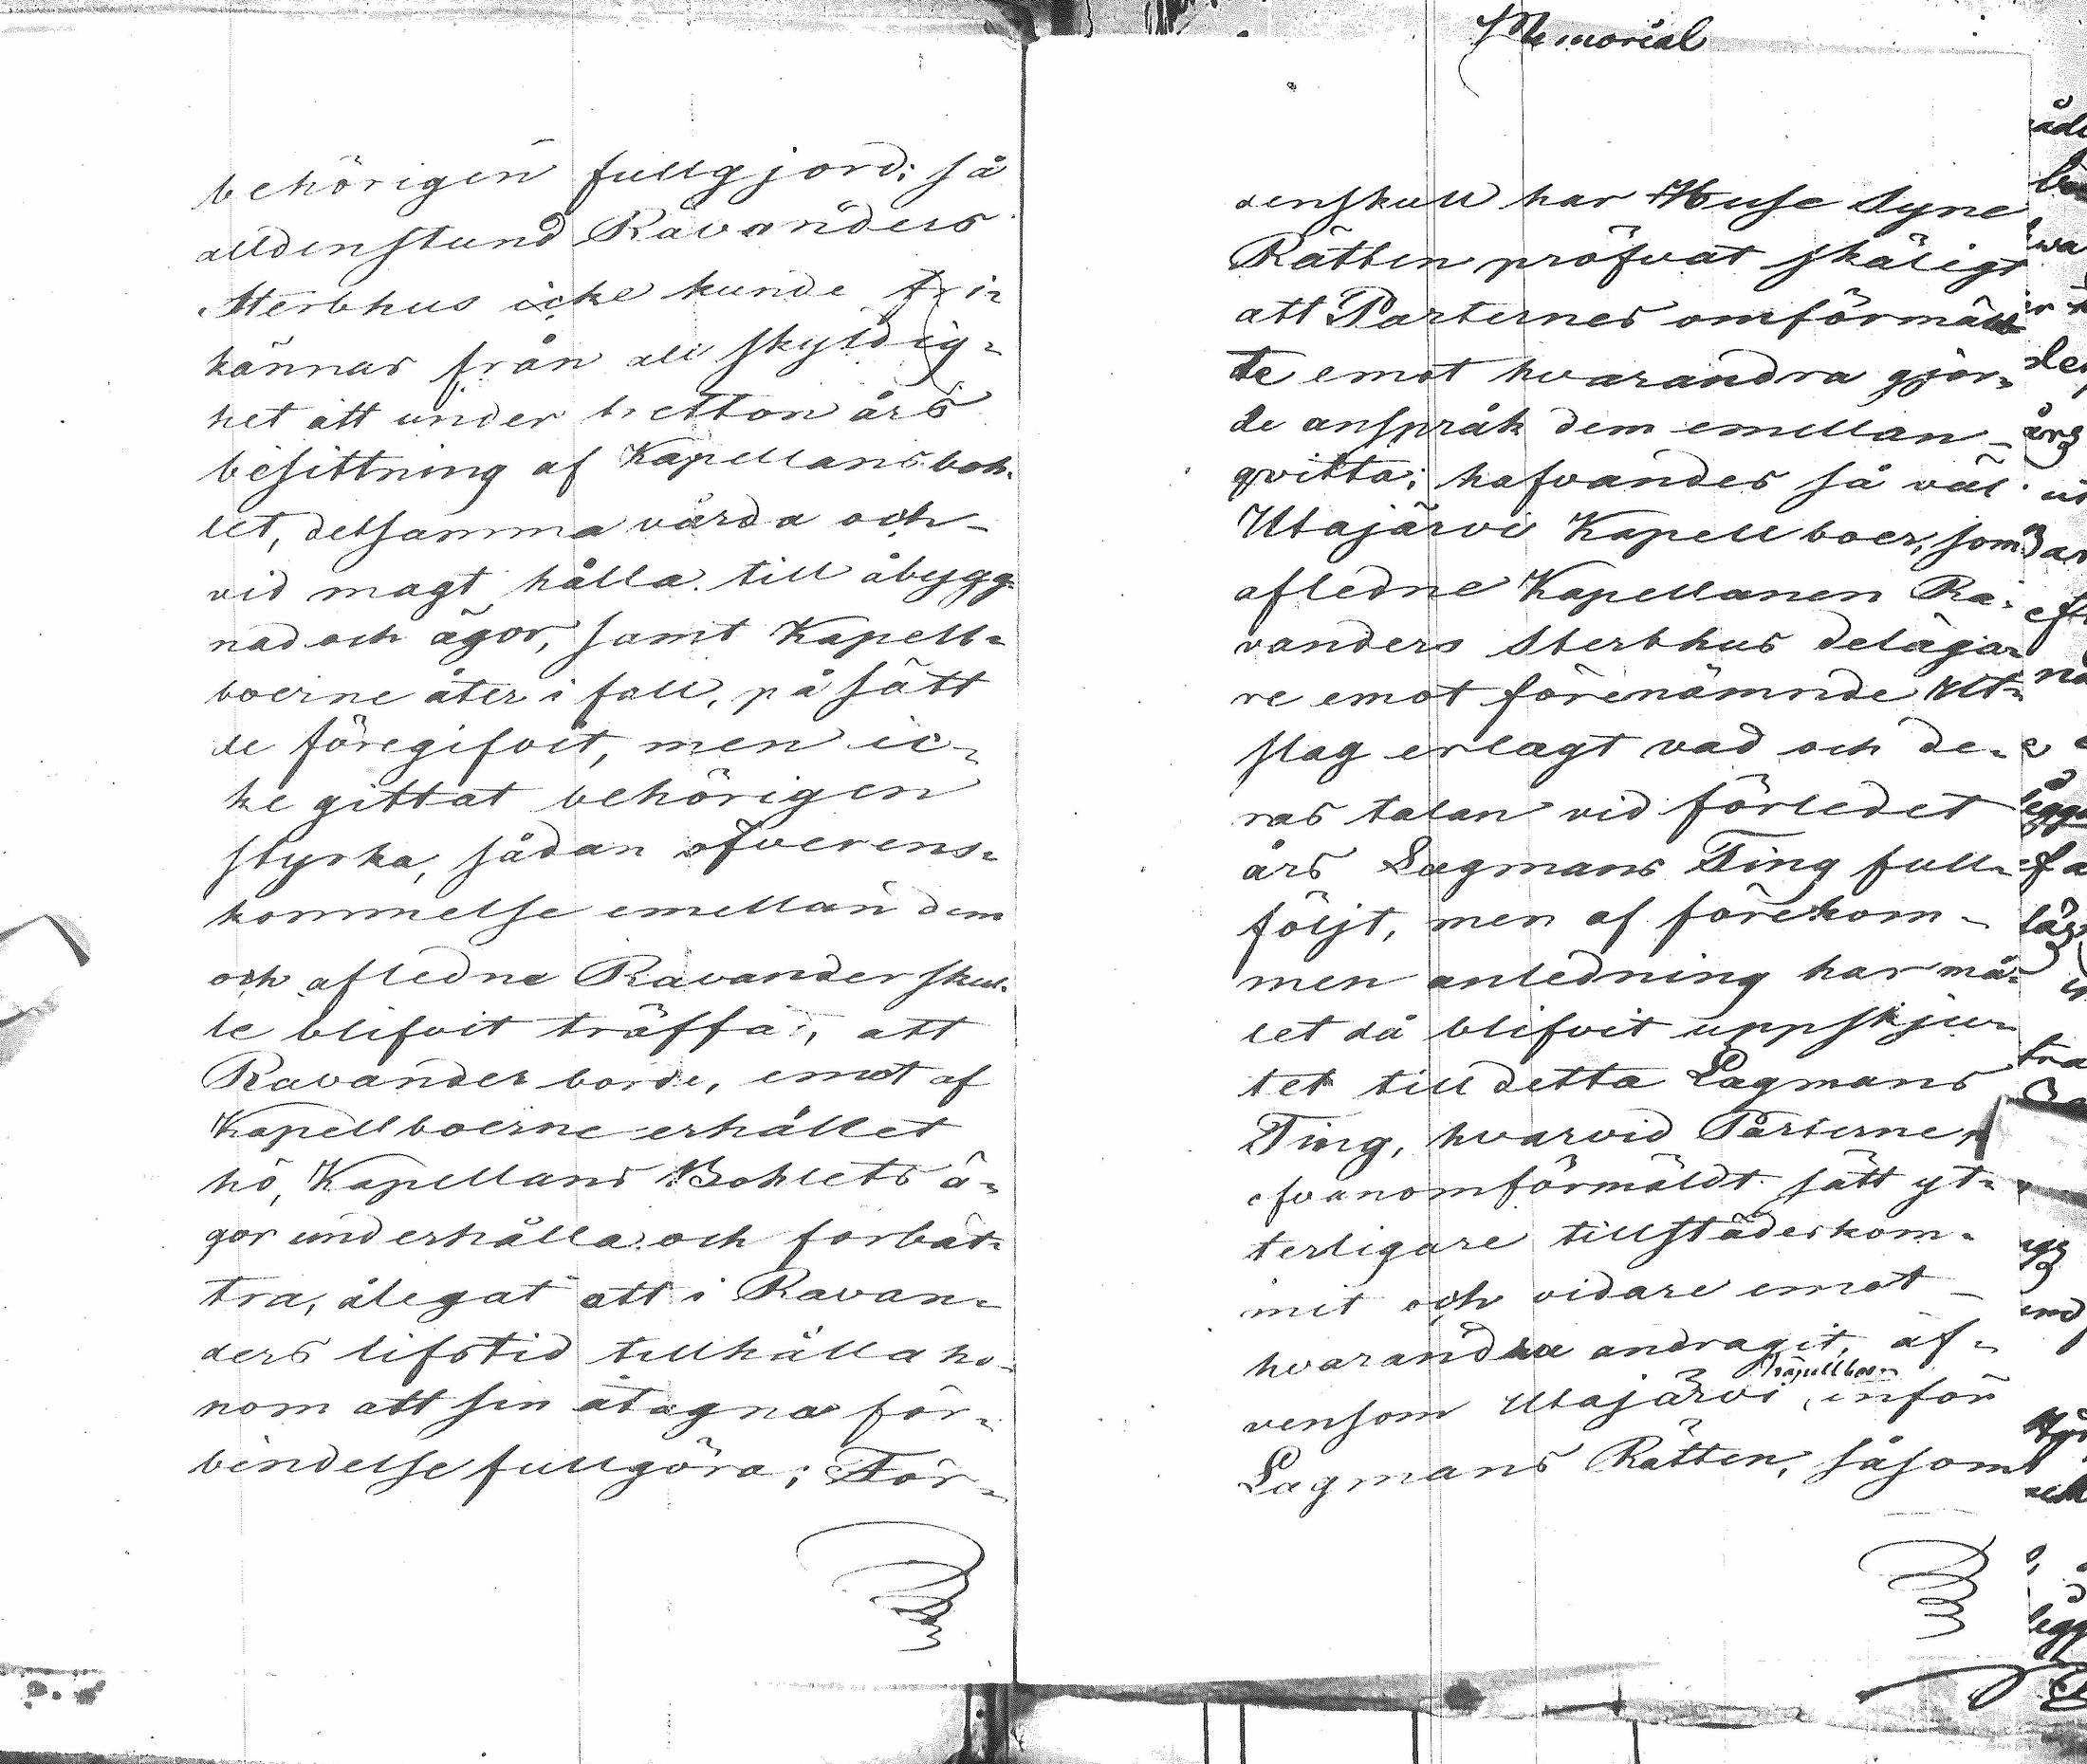 behörigen fullgjord; så
alldenstund Ravanders
Sterbhus icke kunde fri-
kännas från all skyldig-
het att under tretton års
besittning af Kapellansboh-
let, detsamma vårda och
vid magt hålla till åbygg-
nad och ägor, samt Kapell-
boerne åter i fall, på sätt
de föregifvit, men ic-
ke gittat behörigen
styrka, sådan öfverens-
kommelse emellan dem
och afledne Ravander skul-
le blifvit träffa, att
Ravander borde, emot af
Kapellboerne erhållet
hö, Kapellans Bohlets ä-
gor underhålla och förbät-
tra, ålegat att i Ravan-
ders lifstid tillhålla ho-
nom att sin åtagna för-
bindelse fullgöra; För-
Memorial
denskull har Huse Syne
Rätten pröfvat skäligt
att Parternes omförmäl
te emot hvarandra gjor-
de anspråk dem emellan
qvitta; hafvandes så väl
Utajärvi Kapellboer, som
afledne Kapellanen Ra-
vanders Sterbhus deläga-
re emot förenämnde Ut-
slag erlagt vad och de-
ras talan vid förledet
års Lagmans Ting full-
följt, men af förekom-
men anledning har må-
let då blifvit uppskju-
tet till detta Lagmans
Ting, hvarvid Parterne
ofvanomförmäldt sätt yt-
terligare tillstädeskom-
mit och vidare emot
hvarandra andragit, äf-
Kapellboer
vensom Utajärvi, inför
Lagmans Rätten, såsom